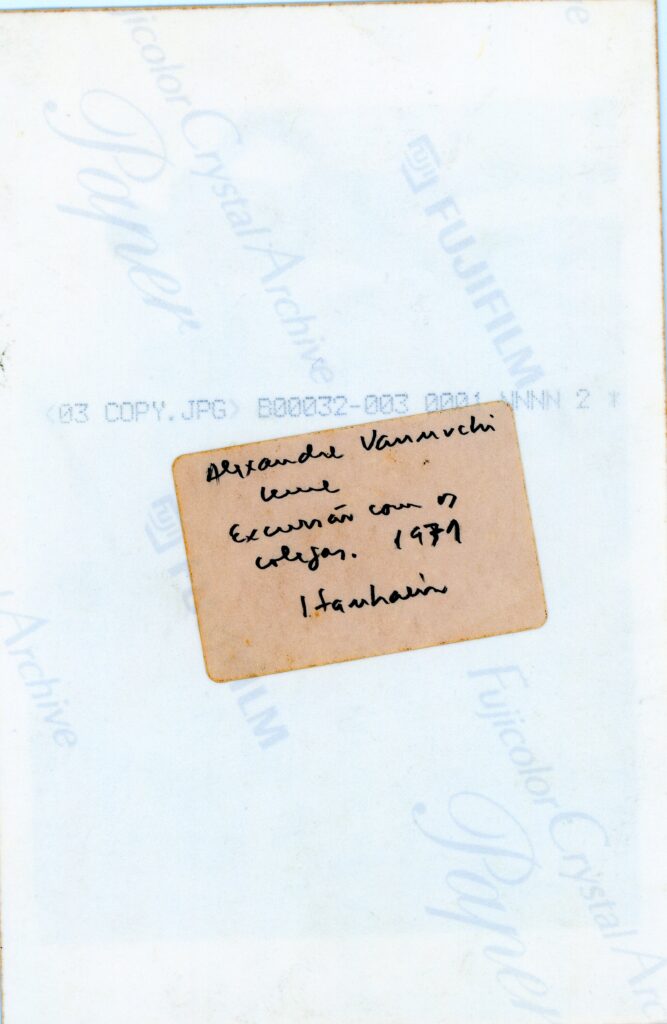 Fujicolor Crystal Archive
Paper
FUJI FUJIFILM
<03 COPY.JPG> B00032-003 0001 NNNN 2 *
Alexandre Vannucchi
Leme
Excursão com os
colegas. 1971
Itanhaém
Archive
Fujicolor Crystal Arc
Paper